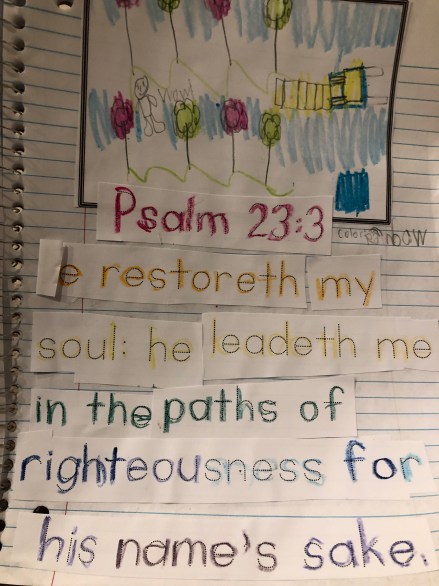 Wow!
Psalm 23:3
e restoreth my
soul: he leadeth me
in the paths of
righteousness for
his name's sake.